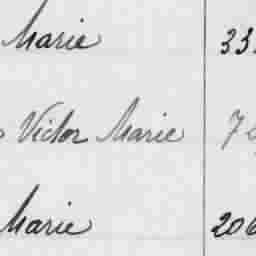 Marie 33
Victor Marie 7
Marie 206